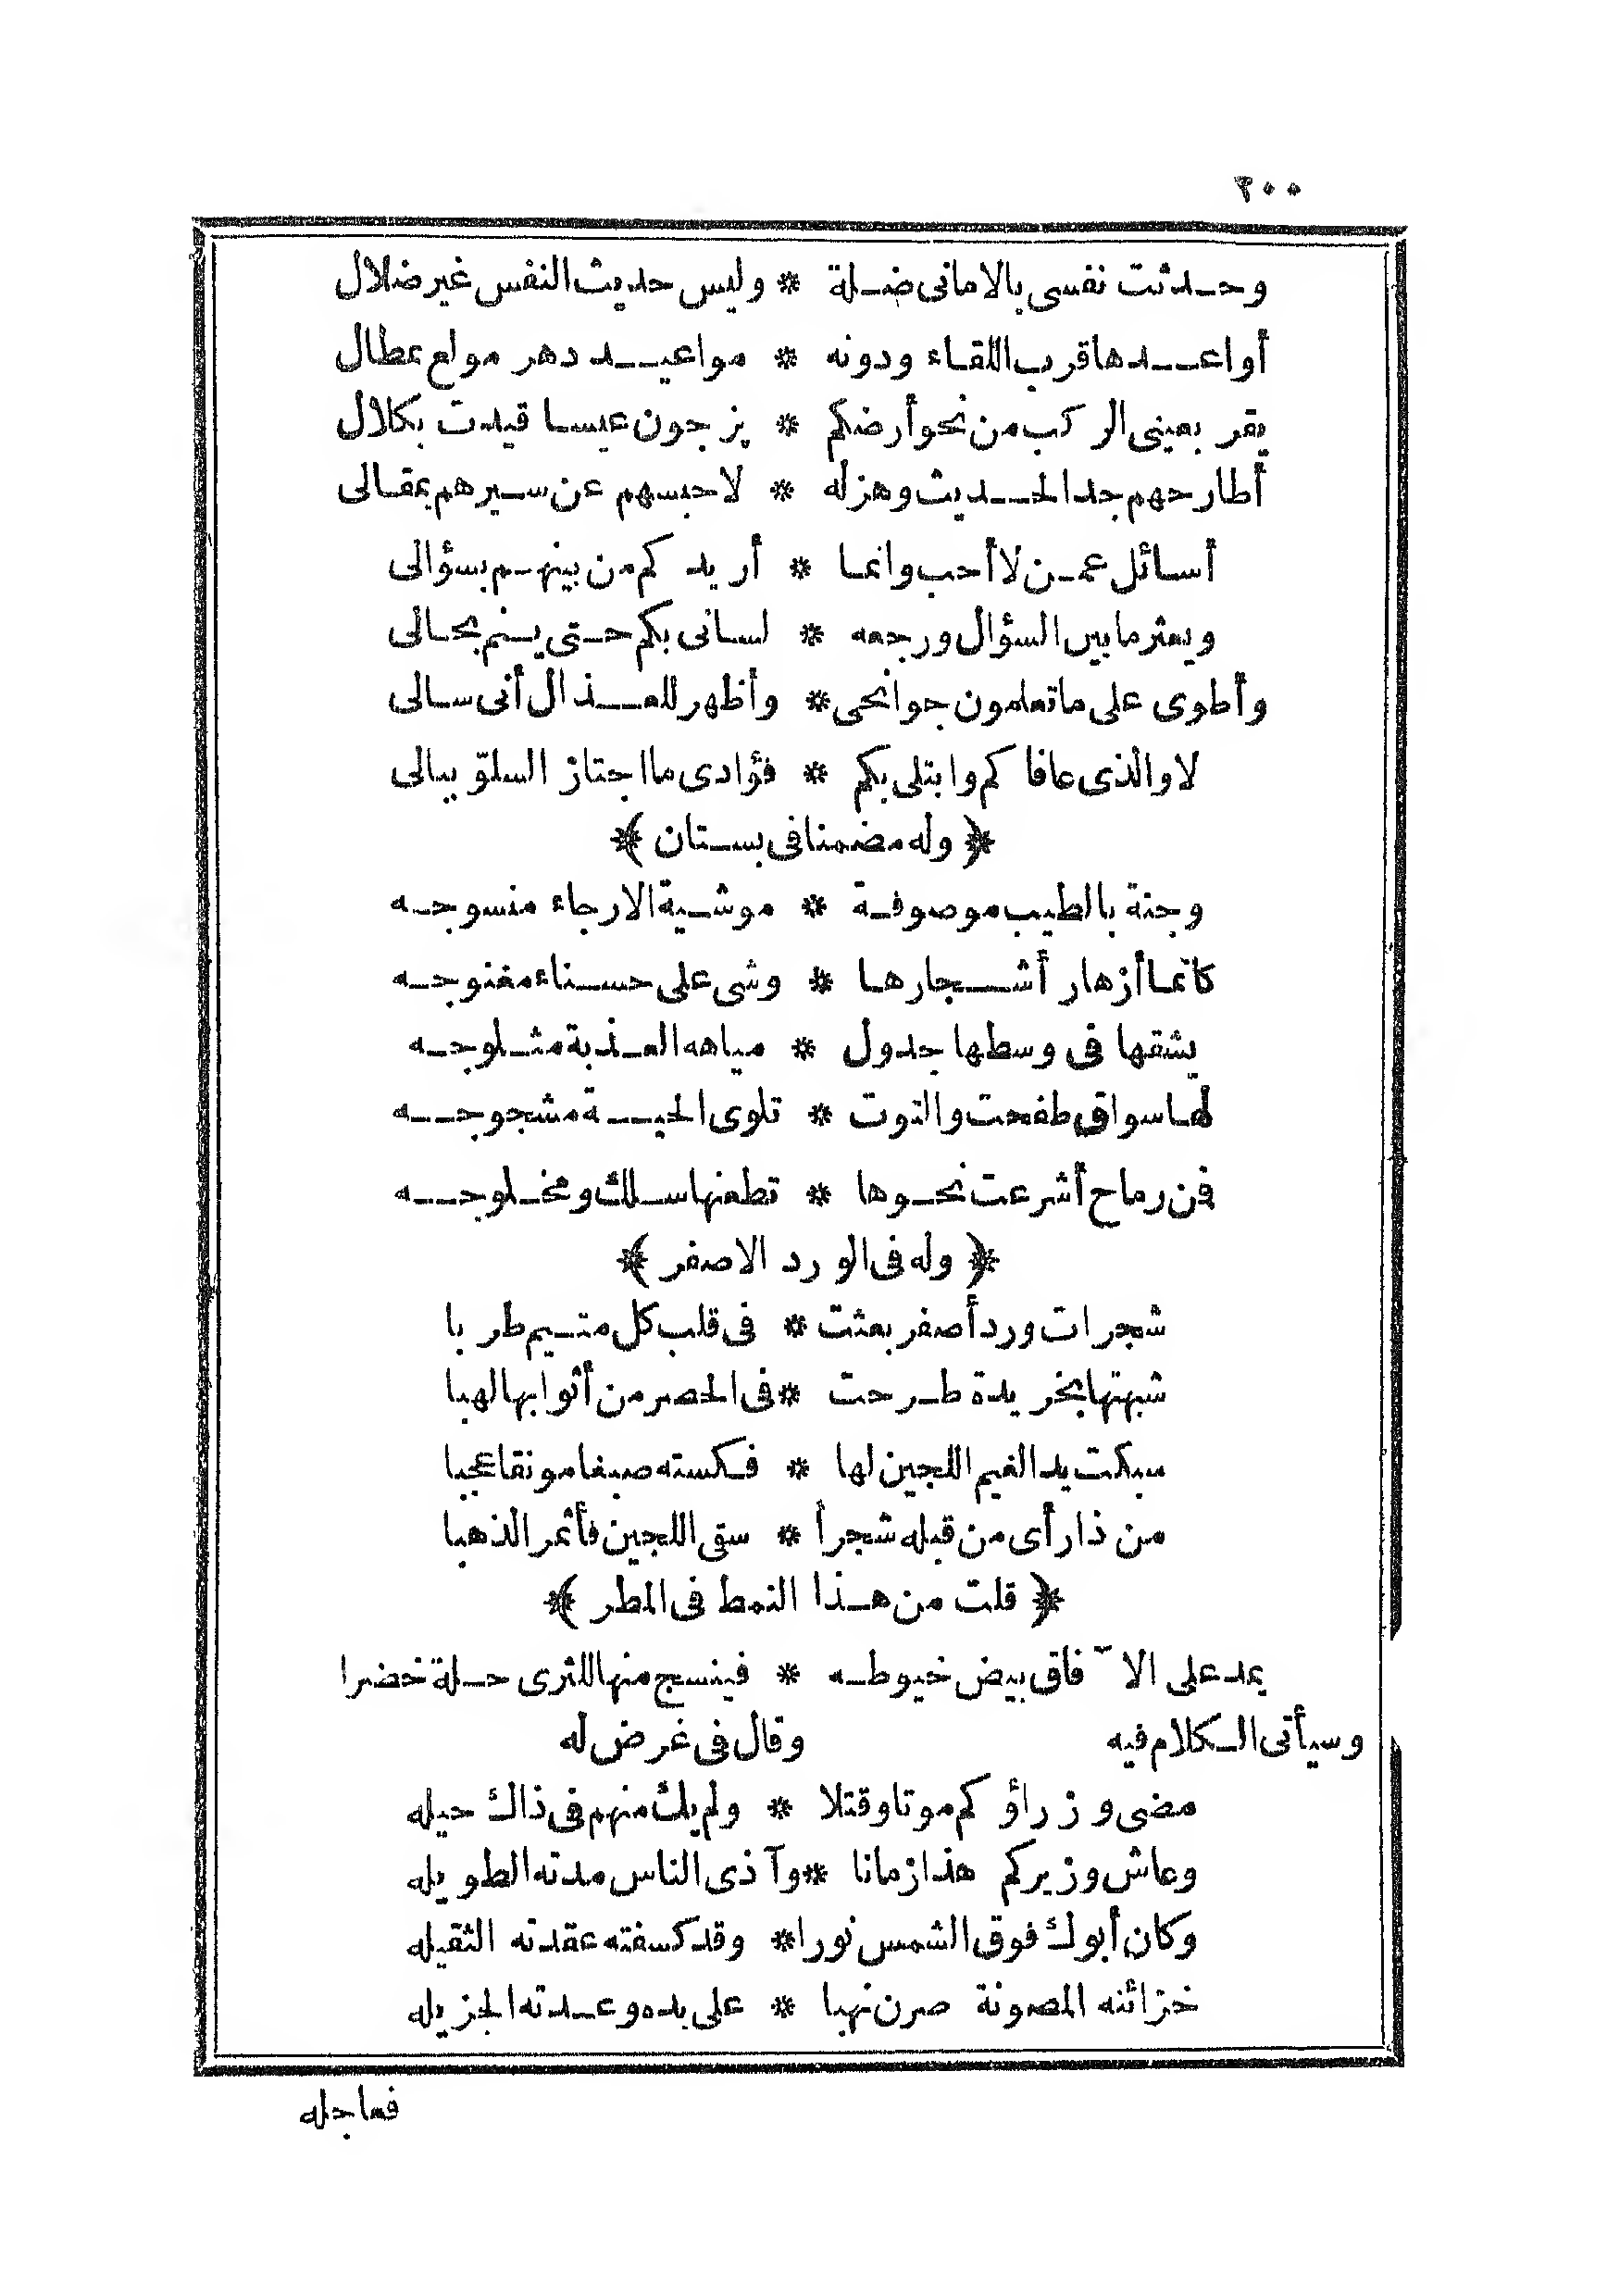 ٢٠٠
وحدثت نفسى بالامانى ضلة * وليس حديث النفس غير ضلال
أواعدها قرب اللقاء ودونه * مواعيد دهر مولع بمطال
يقر بعينى الركب من نحو أرضكم * يزجون عيسا قيدت بكلال
أطارحهم جد الحديث وهزله * لاحبسهم عن سيرهم بمقالى
أسائل عمن لا أحب وانما * أريدكم من بينهم بسؤالى
ويعثر ما بين السؤال ورجعه * لسانى بكم حتى ينم بحالى
وأطوى على ما تعلمون جوانحى * وأظهر للعذال أنى سالى
لا والذى عافاكم وابتلى بكم * فؤادى ما اجتاز السلوّ ببالى
﴿ وله مضمنا فى بستان ﴾
وجنة بالطيب موصوفة * موشية الارجاء منسوجه
كانما أزهار أشجارها * وشى على حسناء مغنوجه
يشقها فى وسطها جدول * مياهه العذبة مثلوجه
لها سواق طفحت والتوت * تلوى الحية مشجوجه
فمن رماح أشرعت نحوها * تطعنها سلك ومخلوجه
﴿ وله فى الورد الاصفر ﴾
شجرات ورد أصفر بعثت * فى قلب كل متيم طربا
شبهتها بخريدة طرحت * فى الخصر من أثوابها لهبا
سبكت يد الغيم اللجين لها * فكسته صبغا مونقا عجبا
من ذا رأى من قبله شجرأ * سقى اللجين فأثمر الذهبا
﴿ قلت من هذا النمط فى المطر ﴾
يمد على الآفاق بيض خيوطه * فينسج منها للثرى حلة خضرا
وسيأتى الكلام فيه وقال فى غرض له
مضى وزراؤكم موتا وقتلا * ولم يك منهم فى ذاك حيله
وعاش وزيركم هذا زمانا * وآذى الناس مدته الطويله
وكان أبوك فوق الشمس نورا * وقد كسفته عقدته الثقيله
خزائنه المصونة صرن نهبا * على يده وعدته الجزيله
فعاجله